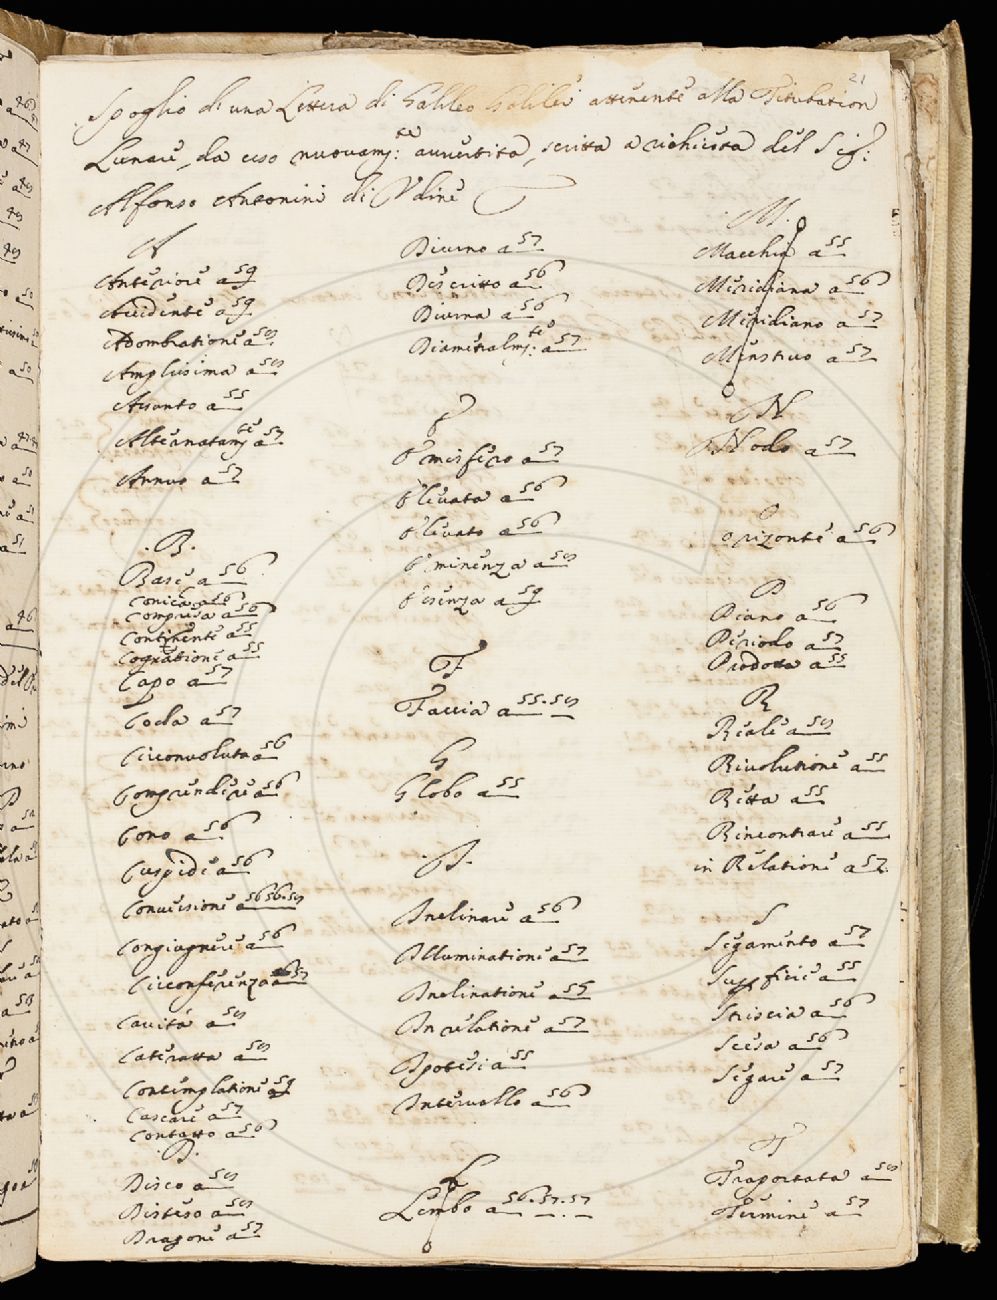 21
Spoglio di una Lettera di Galileo Galilei attinente alla Titubation
Lunare, da esso nuovam:te avvertita, scritta a richiesta del Sig:
Alfonso Antonini di Udine
A
Anteriore a 59
Accidente a 59
Adombratione a 58
Amplissima a 58
Assunto a 55
Alternatam:te a 57
Annuo a 57
.B.
Base a 56
Conica a 56
Compresa a 56
Continente a 55
Cognitione a 55
Capo a 57
Coda a 57
Circonvoluta a 56
Comprendere a 56
Cono a 56
Cuspide a 56
Conversione a 56 56.58
Congiugnere a 56
Circonferenza a 57
Cavità a 58
Cateratta a 58
Contemplatione a 59
Cascare a 57
Contatto a 56
.D.
Disco a 58
Disteso a 58
Dragone a 57
Diurno a 57
Descritto a 56
Diurna a 56
Diametralm:te a 57
E
Emisfero a 57
Elevata a 56
Elevato a 56
Eminenza a 58
Essenza a 59
F
Faccia a 55.58
G
Globo a 55
.I.
Inclinare a 56
Illuminatione a 57
Inclinatione a 56
In relatione a 57
Ipotesi a 55
Intervallo a 56
L
Lembo a 56.57.57
M.
Macchia a 55
Meridiana a 56
Meridiano a 57
Menstruo a 57
N
Nodo a 57
O
Orizonte a 56
P
Piano a 56
Periodo a 57
Prodotta a 55
R
Reale a 58
Rivolutione a 55
Retta a 55
Rincontrare a 55
in Relatione a 57
S
Segamento a 57
Superficie a 55
Striscia a 56
Scesa a 56
Segare a 57
T
Traportata a 58
Termine a 57